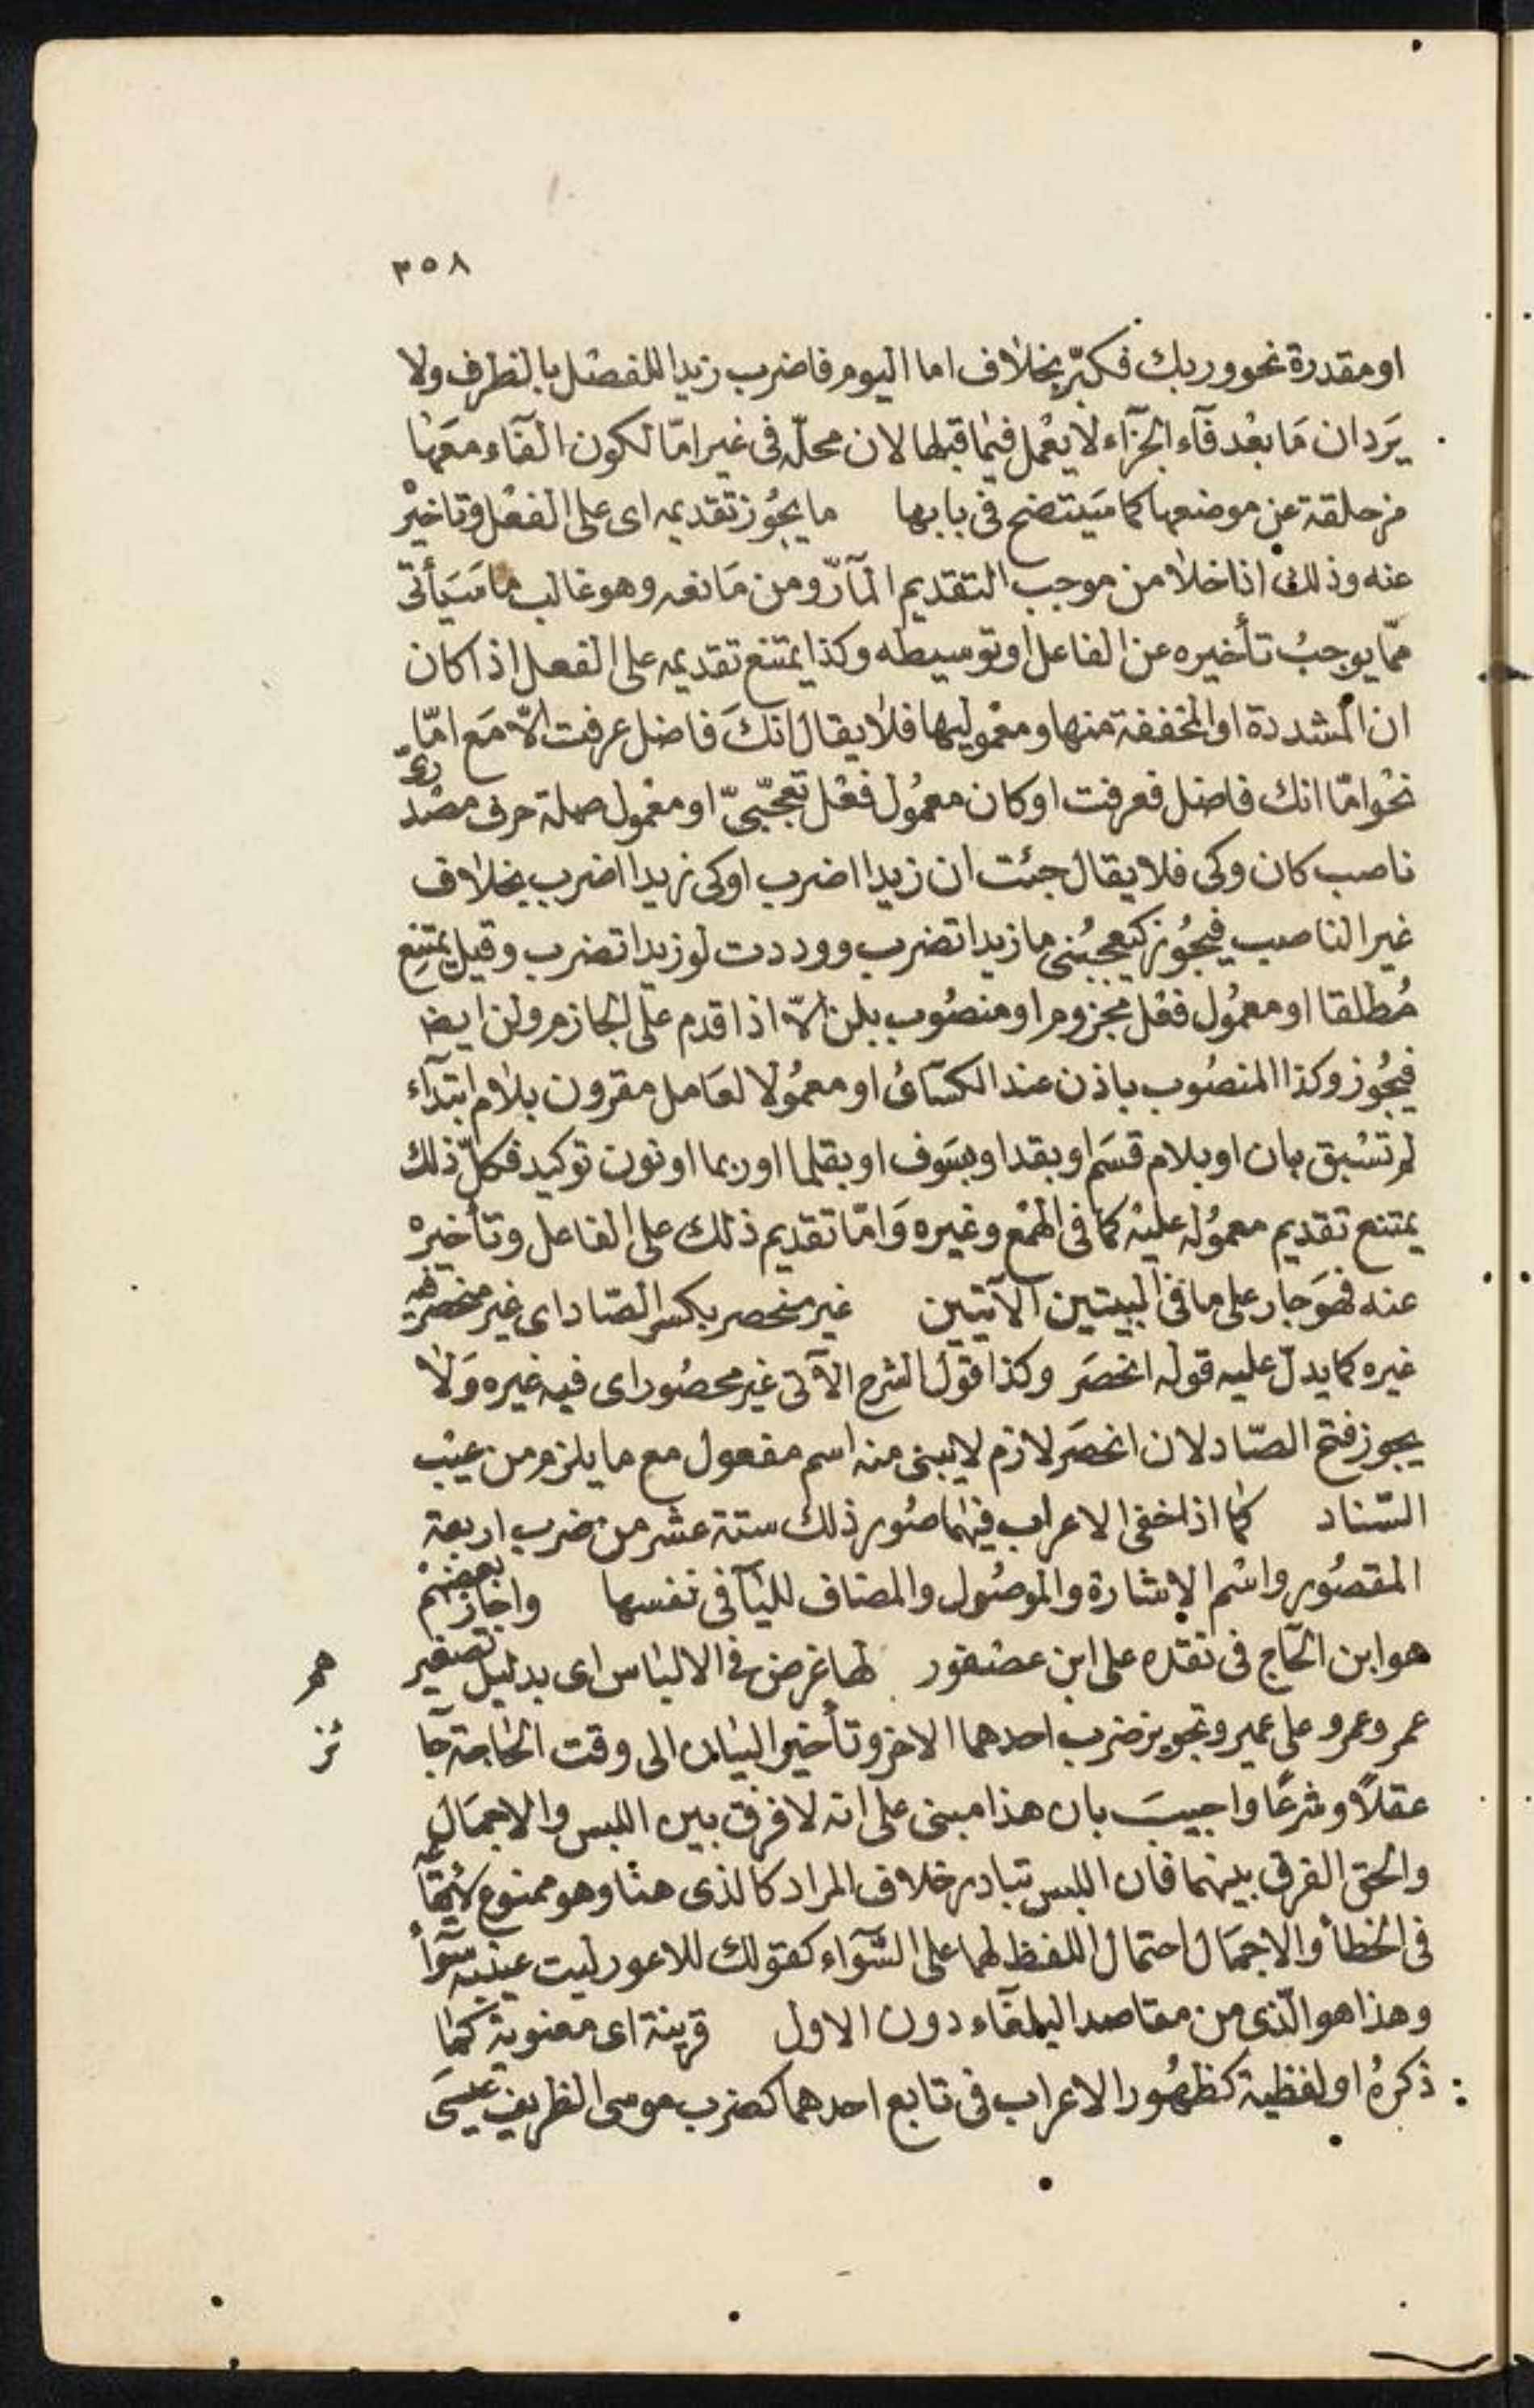 ٣٥٨
او مقدرة نحو وربك فكبّر بخلاف اما اليوم فاضرب زيدا للفصل بالظرف ولا
يَرد ان مَا بعْد فآء الجزآء لا يعْمل فيما قبلها لان محلّه فى غير امّا لكون الفآء معَها
مزحلقة عن موضعها كما سَيتضح فى بابها ما يجُوز تقديمه اى على الفعْل وتاخيرْ
عنه وذلك اذا خلا من موجب التقديم المآرّ ومن مَانعه وهو غالب ما سَيَأتى
ممّا يوجبُ تأخيره عن الفاعل او توسيطه وكذا يمتنع تقديمه على الفعل اذا كان
ان المشددة او المخففة منها ومعْموليها فلا يقال انكَ فاضل عرفت الّا مَع امّا
نحْو امّا انك فاضل فعرفت او كان معمُول فعْل تعجّبىّ او معْمول صلة حرف مصْدرىّ
ناصب كان وكى فلا يقال جئت ان زيدا اضرب او كى زيدا اضرب بخلاف
غير الناصب فيجُوز كيعجبُنى ما زيدا تضرب ووددت لو زيدا تضرب وقيل يمتنع
مُطلقا او معمُول فعْل مجزوم او منصُوب بلن الّا اذا قدم على الجازم ولن ايضا
فيجُوز وكذا المنصُوب باذن عند الكسَائى او معمُولا لعَامل مقرون بلام ابتدآء
لم تسْبق بان او بلام قسَم او بقد او بسَوف او بقلما او ربما او نون توكيد فكلّ ذلك
يمتنع تقديم معموُله عليْه كما فى الهمْع وغيره وَامّا تقديم ذلك على الفاعل وتأخيرهْ
عنه فهوَ جار على ما فى البيتين الآتيين غير منحصر بكسر الصّاد اى غير منحصر فيه
غيره كما يدلّ عليه قوله انحصَر وكذا قول الشرح الآتى غير محصُور اى فيه غيره وَلا
يجوز فتح الصّاد لان انحصَر لازم لا يبنى منه اسم مفعول مع ما يلزم من عيْب
السّناد كما اذا خفى الاعراب فيهما صُور ذلك ستة عشر من ضرب اربعة
المقصُور واسْم الاشارة والموصُول والمضاف لليآ فى نفسها واجاز بعضهمْ
هو ابن الحَاج فى نقده على ابن عصْفور لها غرض فى الالبَاس اى بدليل تصغير
عمر وعمرو على عمير وتجويز ضرب احدهما الاخر وتأخير البيَان الى وقت الحَاجة جآ
ئز
عقلاً وشرعًا واجيبَ بان هذا مبنى على انه لا فرق بين اللبس والاجمَال
والحق الفرق بينهما فان اللبس تبادر خلاف المراد كالذى هنا وهو ممنوع لايقاعه
فى الخطأ والاجمَال احتمال اللفظ لهما على السّوآء كقولك للاعور ليت عينيه سَوآءُ
وهذا هو الّذى من مقاصد البلغآء دون الاول قرينة اى معنوية كما
ذكرهُ او لفظية كظهُور الاعراب فى تابع احدهما كضرب موسى الظريف عيسَى